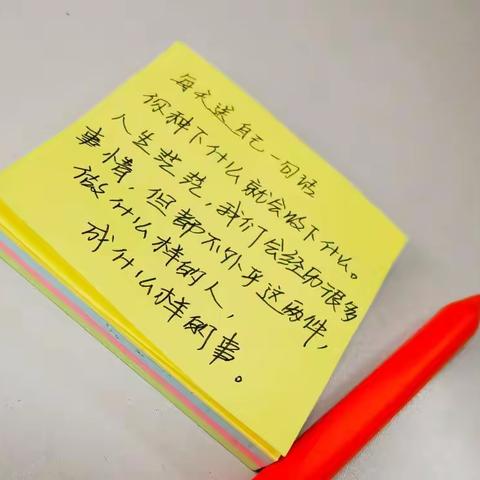 每天送自己一句话
你种下什么就会收下什么。
人生茫茫,我们会经历很多
事情,但都不外乎这两件,
做什么样的人,
成什么样的事。